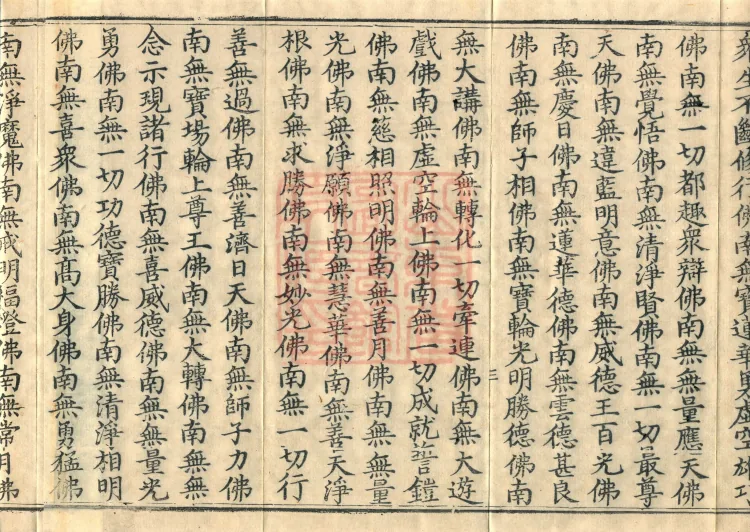 衆生不斷修行佛南無寶蓮華
佛南無一切都趣衆辯佛南無無量應天佛
南無覺悟佛南無清淨賢佛南無一切最尊
天佛南無違藍明意佛南無威德王百光佛
南無慶日佛南無蓮華德佛南無雲德甚良
佛南無師子相佛南無寶輪光明勝德佛南
無大講佛南無轉化一切牽連佛南無大遊
戲佛南無虛空輪上佛南無一切成就誓鎧
佛南無慈相照明佛南無善月佛南無無量
光佛南無淨願佛南無慧華佛南無善天淨
根佛南無求勝佛南無妙光佛南無一切行
善無過佛南無善濟日天佛南無師子力佛
南無寶場輪上尊王佛南無大轉佛南無無
念示現諸行佛南無喜威德佛南無無量光
勇佛南無一切功德寶勝佛南無清淨相明
佛南無喜衆佛南無髙大身佛南無勇猛佛
南無淨魔佛南無戒明福燈佛南無常月佛
三